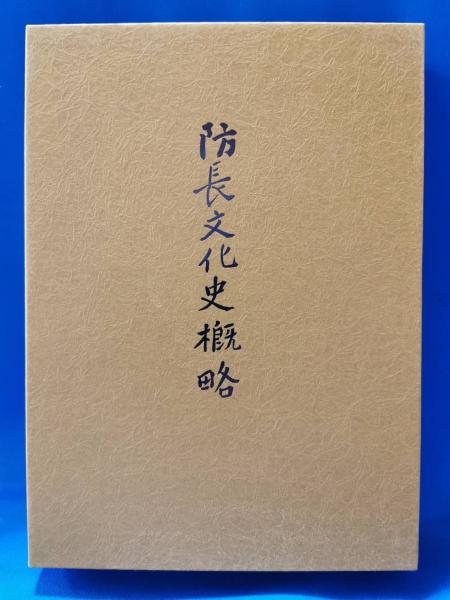 防長文化史概略